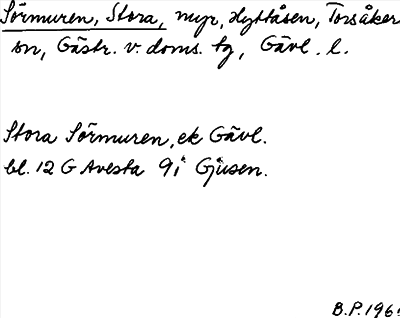 Sörmuren, Stora, myr, Hyttåsen, Torsåker
sn, Gästr. v. doms. tg, Gävl. l.
Stora Sörmuren, ek Gävl.
bl. 12 G Avesta 9i Gjusen.
B.P. 196